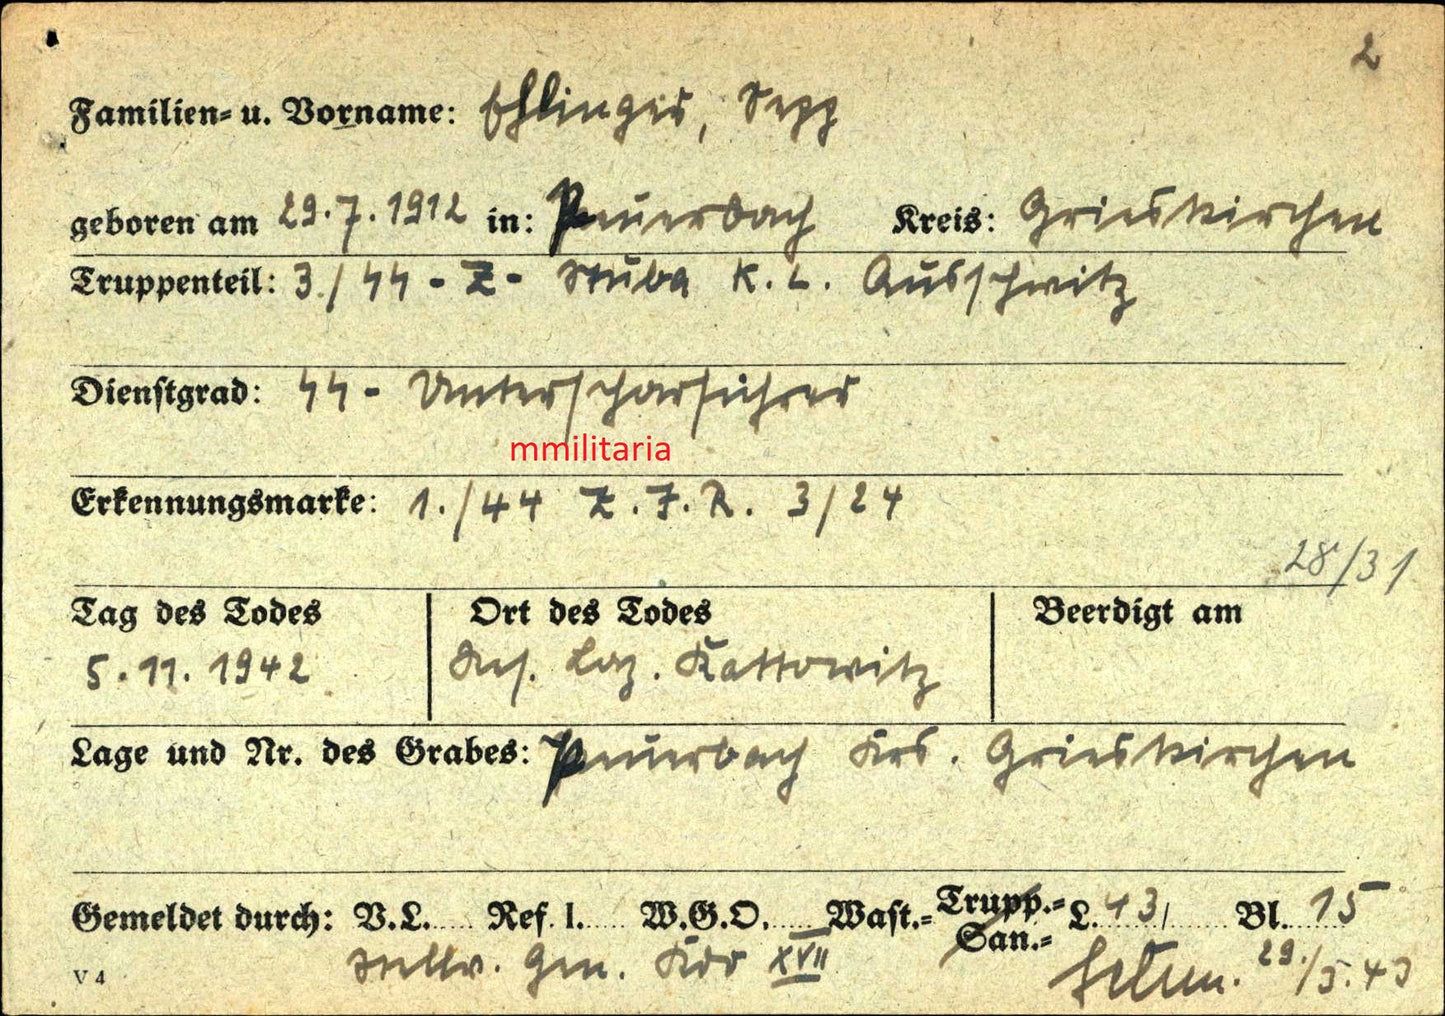 2
Familien- u. Vorname: Ehlinger, Sepp
geboren am 29.7.1912 in: Peuerbach Kreis: Grieskirchen
Truppenteil: 3./SS-Z- Stuba K.L. Auschwitz
Dienstgrad: SS-Unterscharführer
mmilitaria
Erkennungsmarke: 1./SS Z.J.R. 3/24
28/31
Tag des Todes Ort des Todes Beerdigt am
5.11.1942 Res. Laz. Kattowitz
Lage und Nr. des Grabes: Peuerbach Krs. Grieskirchen
Gemeldet durch: V.L. Ref. I. W.G.O. Wast.= Trupp.=
San.= L. 43/ Bl. 15
stellv. Gen. Kdo XVII 29./5.43
V 4